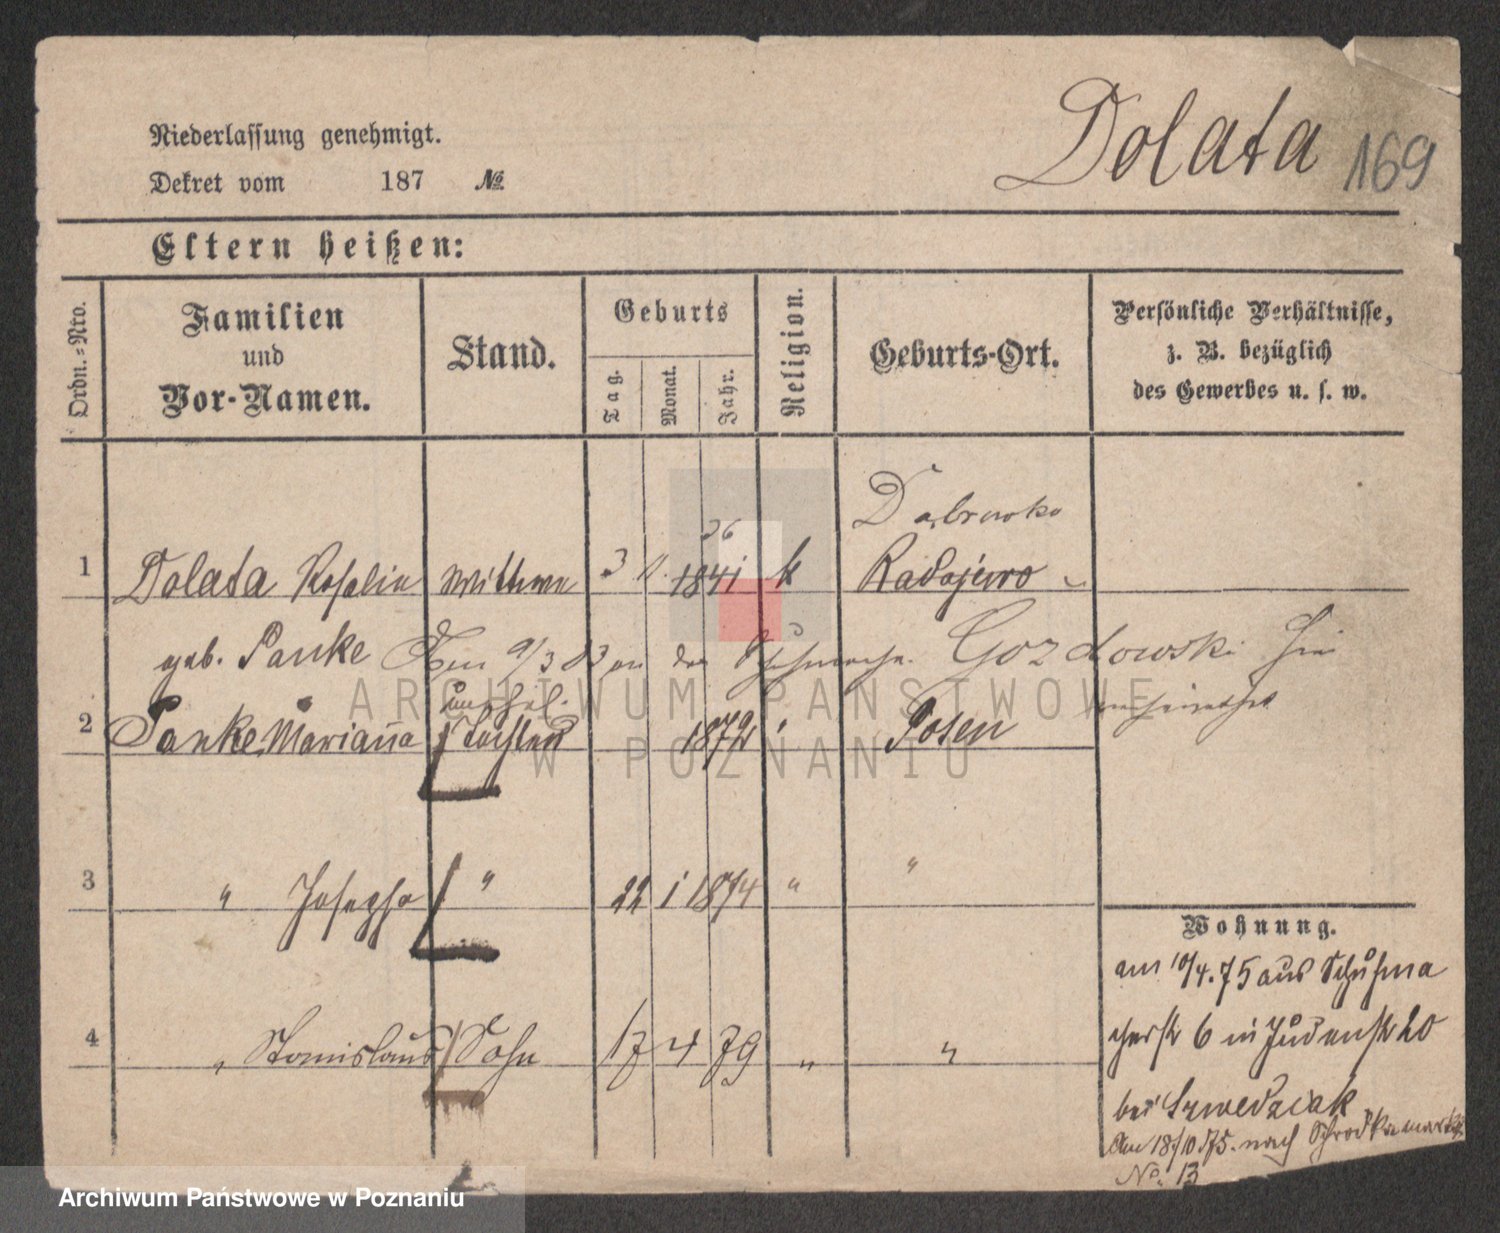 Dolata 169
Niederlassung genehmigt.
Dekret vom 187 №
Eltern heißen:
Ordn.-Nro.
Familien
und
Vor-Namen.
Stand.
Geburts
Tag.
Monat.
Jahr.
Religion.
Geburts-Ort.
Persönliche Verhältnisse,
z. B. bezüglich
des Gewerbes u. s. w.
36
Dąbrowko
1 Dolata Rosalie Wittwe 3 1841 k Radojewo
geb. Panke Am 9/3 83 an den Schuhmacher Gozdowski hier
unehel. verheirathet
2 Panke Marianna Tochter 1872 Posen
3 " Josepha " 22 1 1874 " "
4 " Stanislaus Sohn 17 4 79 " "
Wohnung.
am 10/4. 75 aus Schuhma
cherstr 6 in Judenstr 20
bei Szwedziak
Am 18/10 75. nach Schrodkamarkt
No. 13
ARCHIWUM PAŃSTWOWE
W POZNANIU
Archiwum Państwowe w Poznaniu